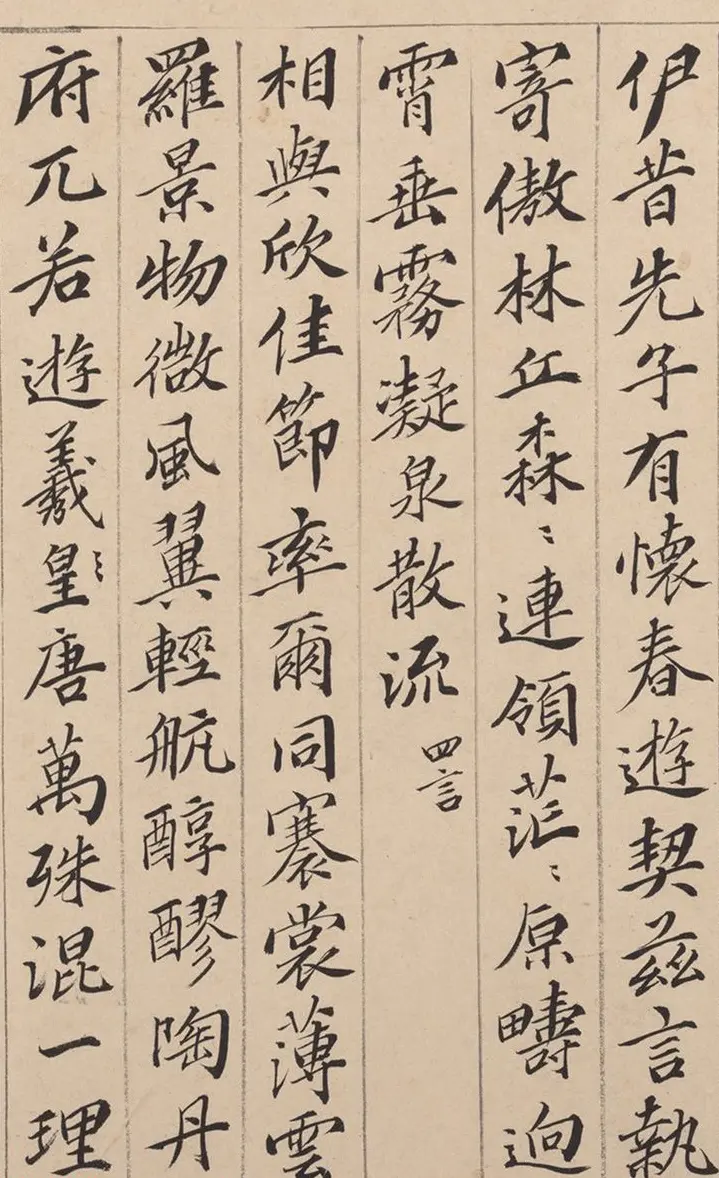 伊昔先子有懷春遊契茲言執
寄傲林丘森〻連領茫〻原疇逈
霄垂霧凝泉散流 四言
相與欣佳節率爾同褰裳薄雲
羅景物微風翼輕航醇醪陶丹
府兀若遊羲皇〻唐萬殊混一理